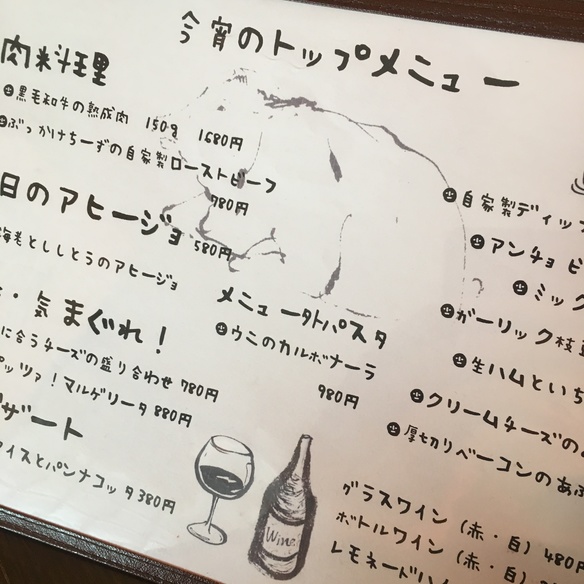 今宵のトップメニュー
肉料理
黒毛和牛の熟成肉 150g 1,680円
ぶっかけちーずの自家製ローストビーフ
780円
日のアヒージョ 580円
海老とししとうのアヒージョ
・気まぐれ!
に合うチーズの盛り合わせ 780円
ピッツァ!マルゲリータ 880円
デザート
アイスとパンナコッタ 380円
メニュー外パスタ
ウニのカルボナーラ
980円
自家製ディップ
アンチョビ
ミック
ガーリック枝豆
生ハムといち
クリームチーズの
厚切りベーコンのあぶ
Wine
グラスワイン (赤・白) 480円
ボトルワイン (赤・白)
レモネード